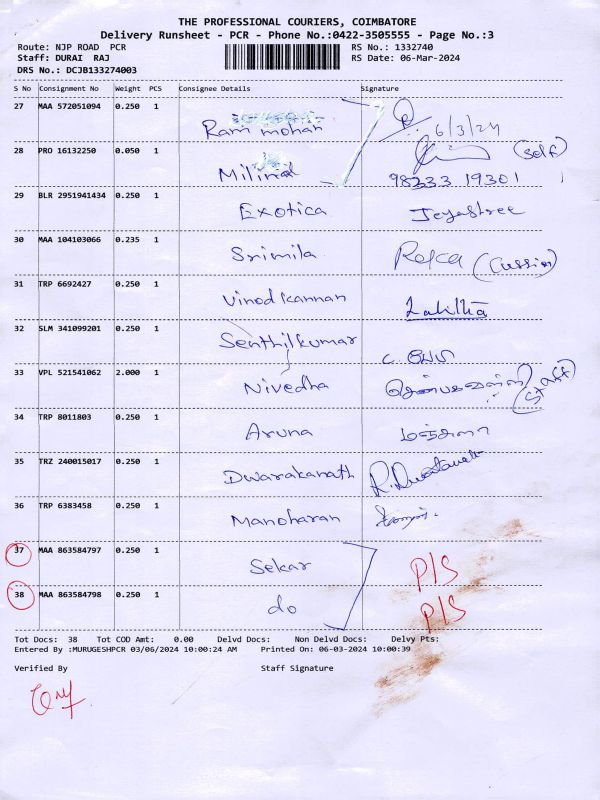 THE PROFESSIONAL COURIERS, COIMBATORE
Delivery Runsheet - PCR - Phone No.:0422-3505555 - Page No.:3
Route: NJP ROAD PCR RS No.: 1332740
Staff: DURAI RAJ RS Date: 06-Mar-2024
DRS No.: DCJB133274003
S No Consignment No Weight PCS Consignee Details Signature
27 MAA 572051094 0.250 1 Ram mohan 6/3/24
28 PRO 16132250 0.050 1 Milind (self)
98233 19301
29 BLR 2951941434 0.250 1 Exotica Jeyastree
30 MAA 104103066 0.235 1 Srimila
31 TRP 6692427 0.250 1 Vinod kannan
32 SLM 341099201 0.250 1 Senthilkumar
33 VPL 521541062 2.000 1 Nivedha (Staff)
34 TRP 8011803 0.250 1 Aruna
35 TRZ 240015017 0.250 1 Dwarakanath
36 TRP 6383458 0.250 1 Manoharan
37 MAA 863584797 0.250 1 Sekar P/S
38 MAA 863584798 0.250 1 do P/S
Tot Docs: 38 Tot COD Amt: 0.00 Delvd Docs: Non Delvd Docs: Delvy Pts:
Entered By :MURUGESHPCR 03/06/2024 10:00:24 AM Printed On: 06-03-2024 10:00:39
Verified By Staff Signature